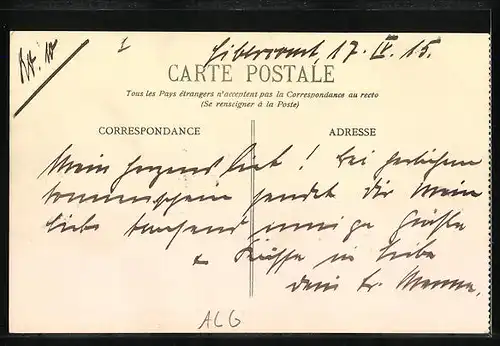 Libercourt, 17. IV. 15.
CARTE POSTALE
Tous les Pays étrangers n'acceptent pas la Correspondance au recto
(Se renseigner à la Poste)
CORRESPONDANCE
ADRESSE
Mein herzens lieb! bei herlichem
sonnenschein sendet dir mein
liebe tausend innige Grüße
+ Küsse in liebe
dein tr. Manne.
ALG